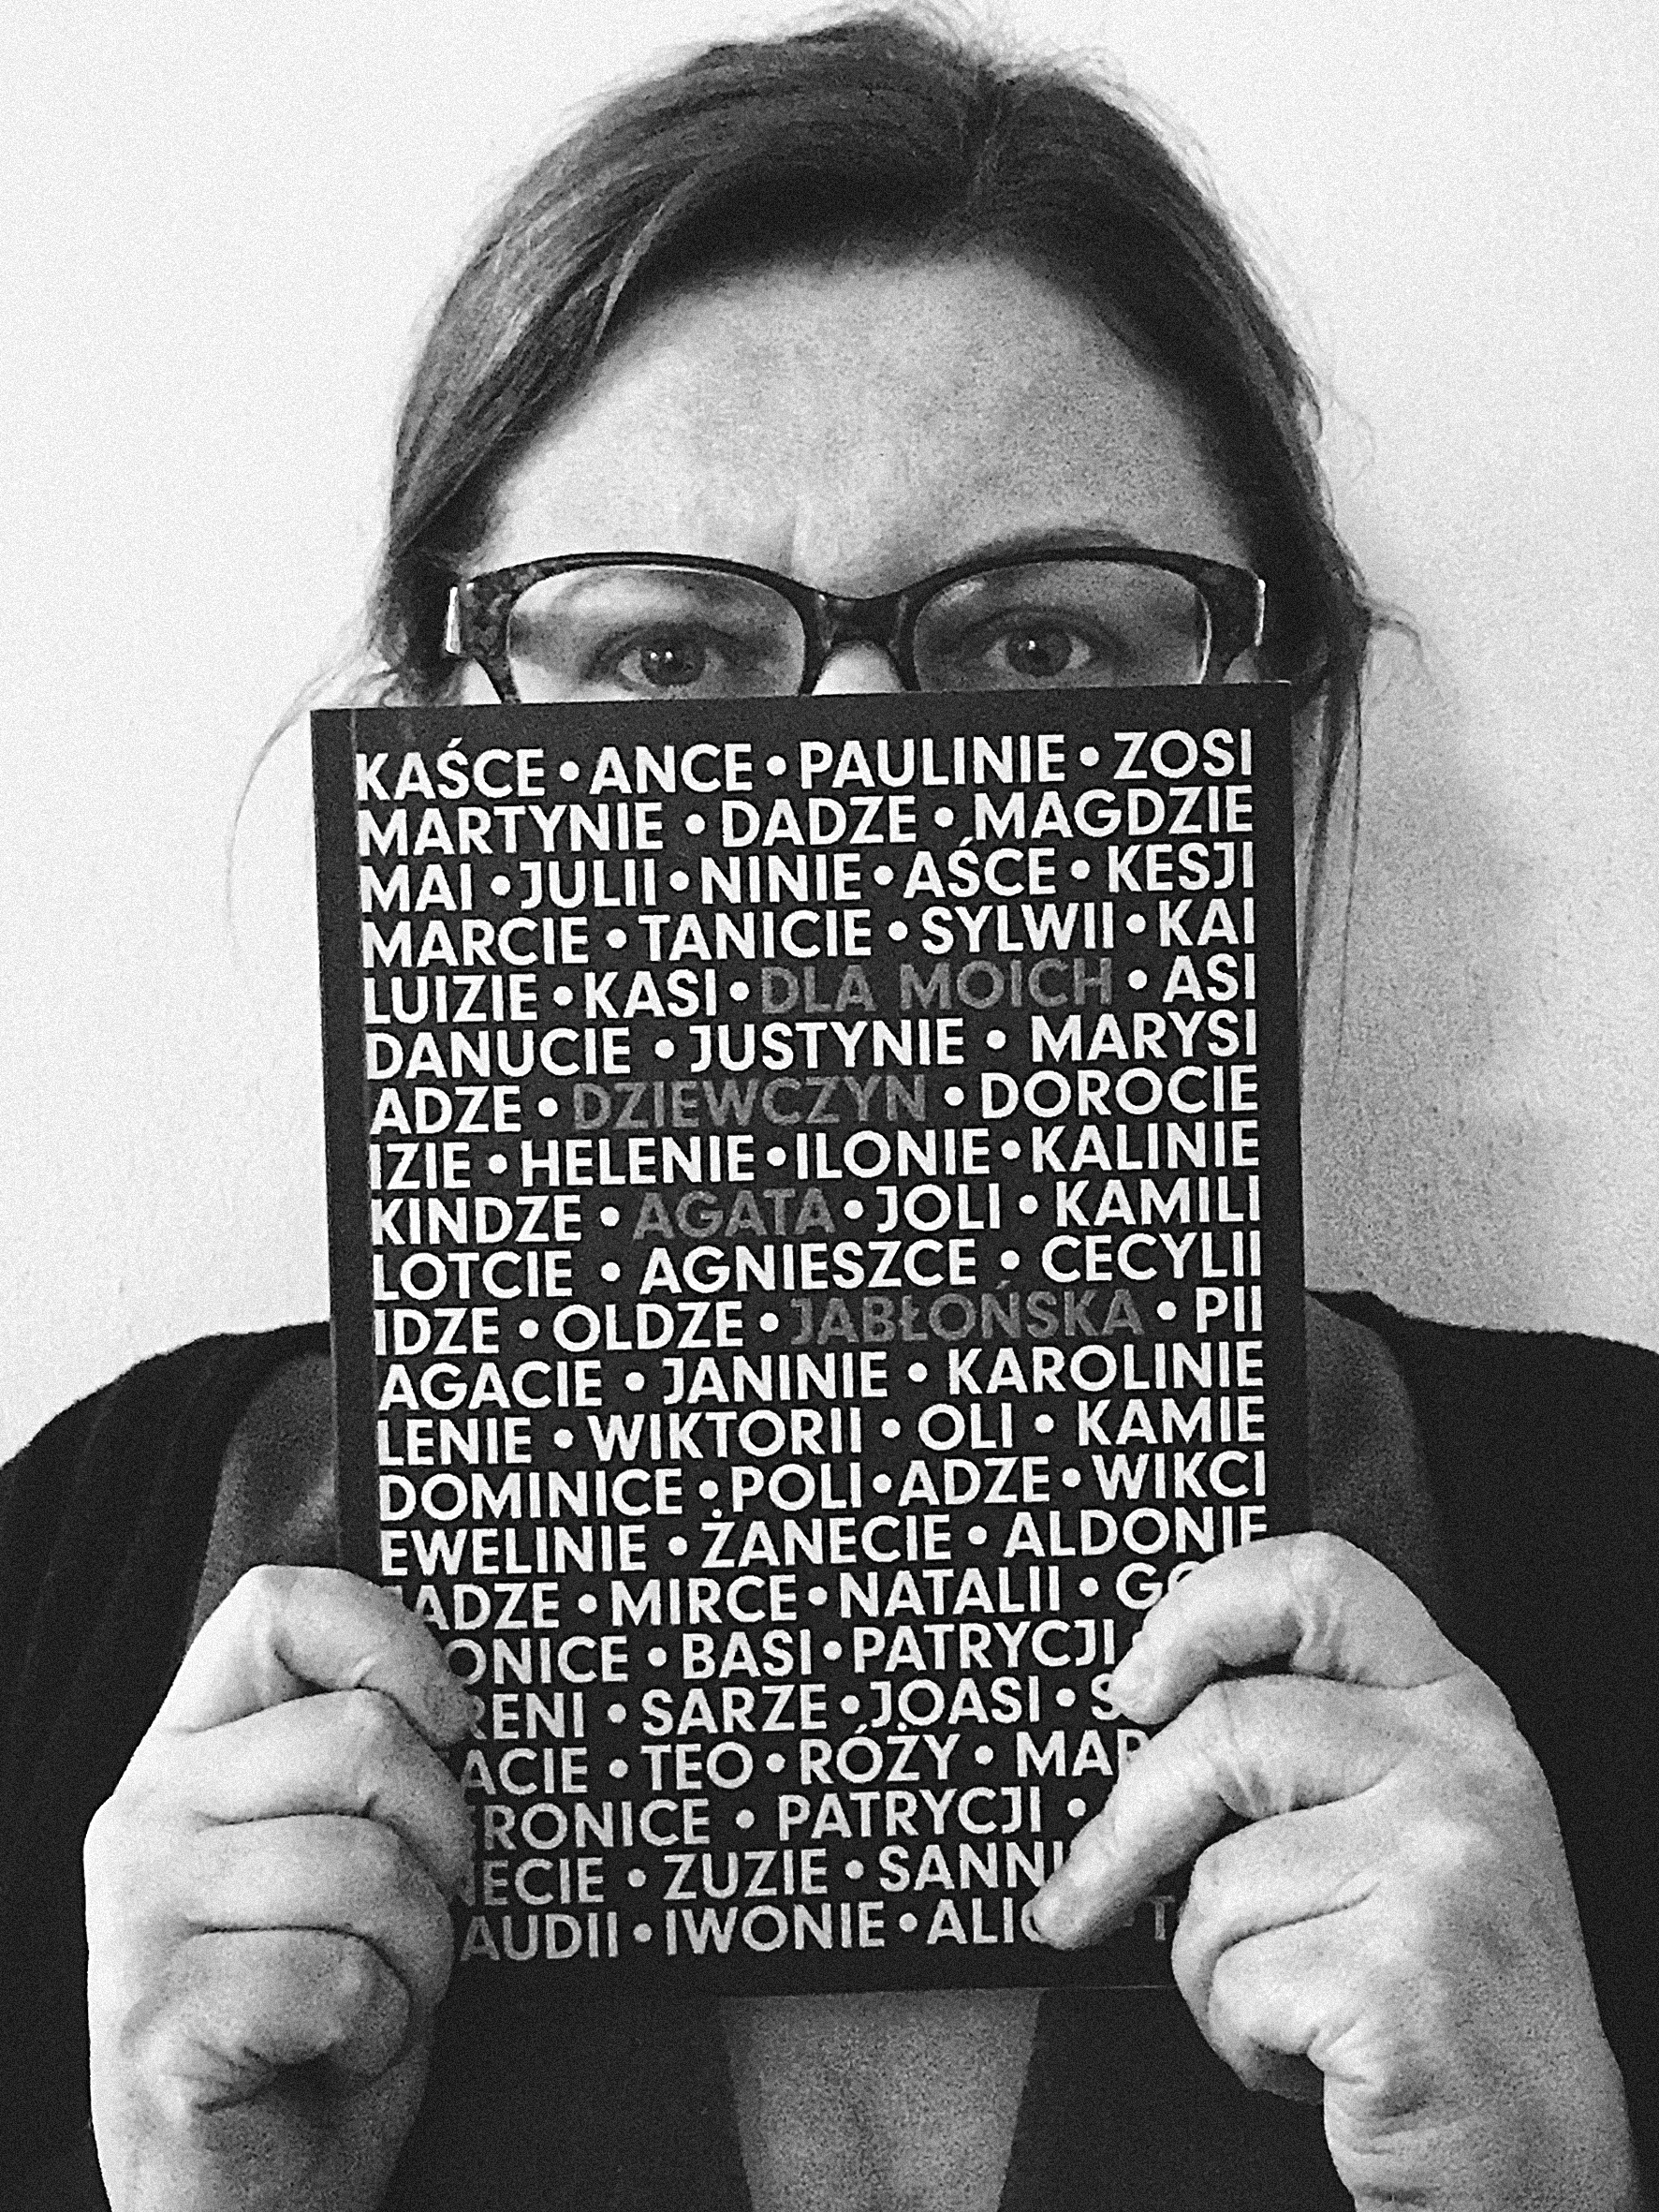 KAŚCE • ANCE • PAULINIE • ZOSI
MARTYNIE • DADZE • MAGDZIE
MAI • JULII • NINIE • AŚCE • KESJI
MARCIE • TANICIE • SYLWII • KAI
LUIZIE • KASI • DLA MOICH • ASI
DANUCIE • JUSTYNIE • MARYSI
ADZE • DZIEWCZYN • DOROCIE
IZIE • HELENIE • ILONIE • KALINIE
KINDZE • AGATA • JOLI • KAMILI
LOTCIE • AGNIESZCE • CECYLII
IDZE • OLDZE • JABŁOŃSKA • PII
AGACIE • JANINIE • KAROLINIE
LENIE • WIKTORII • OLI • KAMIE
DOMINICE • POLI • ADZE • WIKCI
EWELINIE • ŻANECIE • ALDONIE
• MIRCE • NATALII •
• BASI • PATRYCJI
• SARZE • JOASI •
• TEO • RÓŻY •
• PATRYCJI •
• ZUZIE •
• IWONIE •